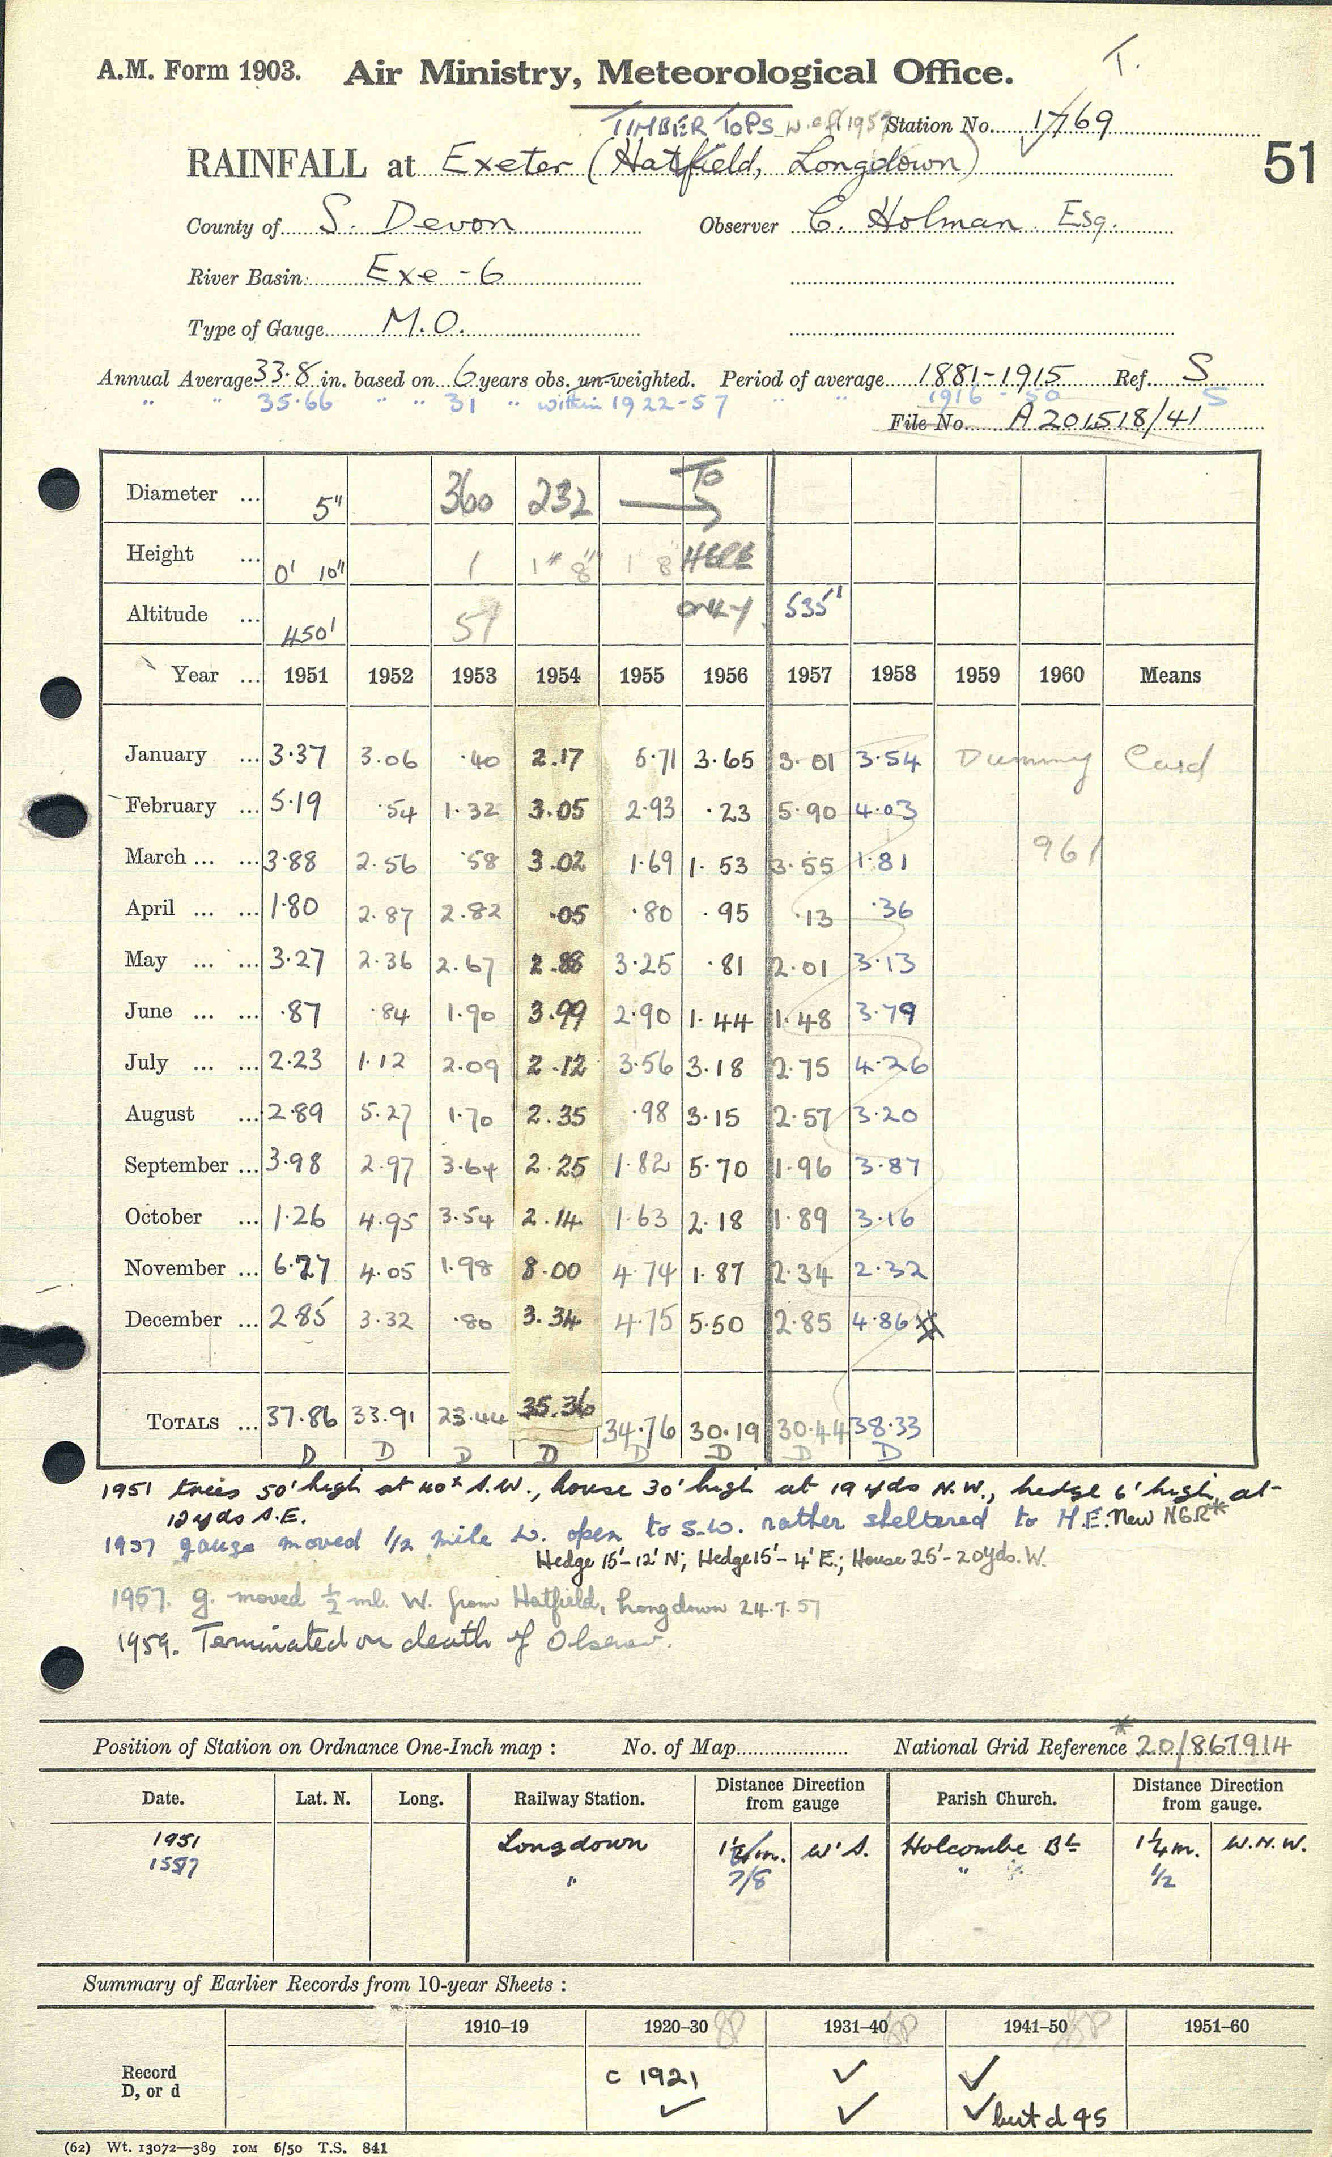 T.
A.M. Form 1903. Air Ministry, Meteorological Office.
TIMBER TOPS w.ef 1957 Station No. 1769
RAINFALL at Exeter (Hatfield, Longdown) 51
County of S. Devon Observer C. Holman Esq.
River Basin Exe - 6
Type of Gauge M.O.
Annual Average 33.8 in. based on 6 years obs. un-weighted. Period of average 1881-1915 Ref. S
" " 35.66 " " 31 " within 1922-57 " " 1916 - 50 S
File No. A 201518/41
Diameter ... 5" 360 232 TO
Height ... 0' 10" 1 1" 8" 1 8 HERE
Altitude ... 450' 51 ONLY 535'
Year ... 1951 1952 1953 1954 1955 1956 1957 1958 1959 1960 Means
January ... 3.37 3.06 .40 2.17 5.71 3.65 3.01 3.54 Dummy Card
February ... 5.19 .54 1.32 3.05 2.93 .23 5.90 4.03
March ... ... 3.88 2.56 .58 3.02 1.69 1.53 3.55 1.81 961
April ... ... 1.80 2.87 2.82 .05 .80 .95 .13 .36
May ... ... 3.27 2.36 2.67 2.88 3.25 .81 2.01 3.13
June ... ... .87 .84 1.90 3.99 2.90 1.44 1.48 3.79
July ... ... 2.23 1.12 2.09 2.12 3.56 3.18 2.75 4.26
August ... 2.89 5.27 1.70 2.35 .98 3.15 2.57 3.20
September ... 3.98 2.97 3.64 2.25 1.82 5.70 1.96 3.87
October ... 1.26 4.95 3.54 2.14 1.63 2.18 1.89 3.16
November ... 6.27 4.05 1.98 8.00 4.74 1.87 2.34 2.32
December ... 2.85 3.32 .80 3.34 4.75 5.50 2.85 4.86
TOTALS ... 37.86 33.91 23.44 35.36 34.76 30.19 30.44 38.33
D D D D D D D D
1951 trees 50' high at 40x S.W., house 30' high at 19 yds N.W., hedge 6' high, at
12 yds S.E.
1957 gauge moved 1/2 mile W. open to S.W. rather sheltered to N.E. New NGR*
Hedge 15'-12' N; Hedge 15'-4' E.; House 25'-20yds. W.
1957. g. moved 1/2 ml. W. from Hatfield, Longdown 24.7.57
1959. Terminated on death of Observer.
Position of Station on Ordnance One-Inch map : No. of Map National Grid Reference * 20/867914
Date. Lat. N. Long. Railway Station. Distance Direction from gauge Parish Church. Distance Direction from gauge.
1951 Longdown m. W'S. Holcombe Bt 1 1/4 m. W.N.W.
1957 " 7/8 " 1/2
Summary of Earlier Records from 10-year Sheets :
1910-19 1920-30 1931-40 1941-50 1951-60
Record c 1921 ✓ ✓
D, or d ✓ ✓ ✓ but d 45
(62) Wt. 13072—389 10M 6/50 T.S. 841